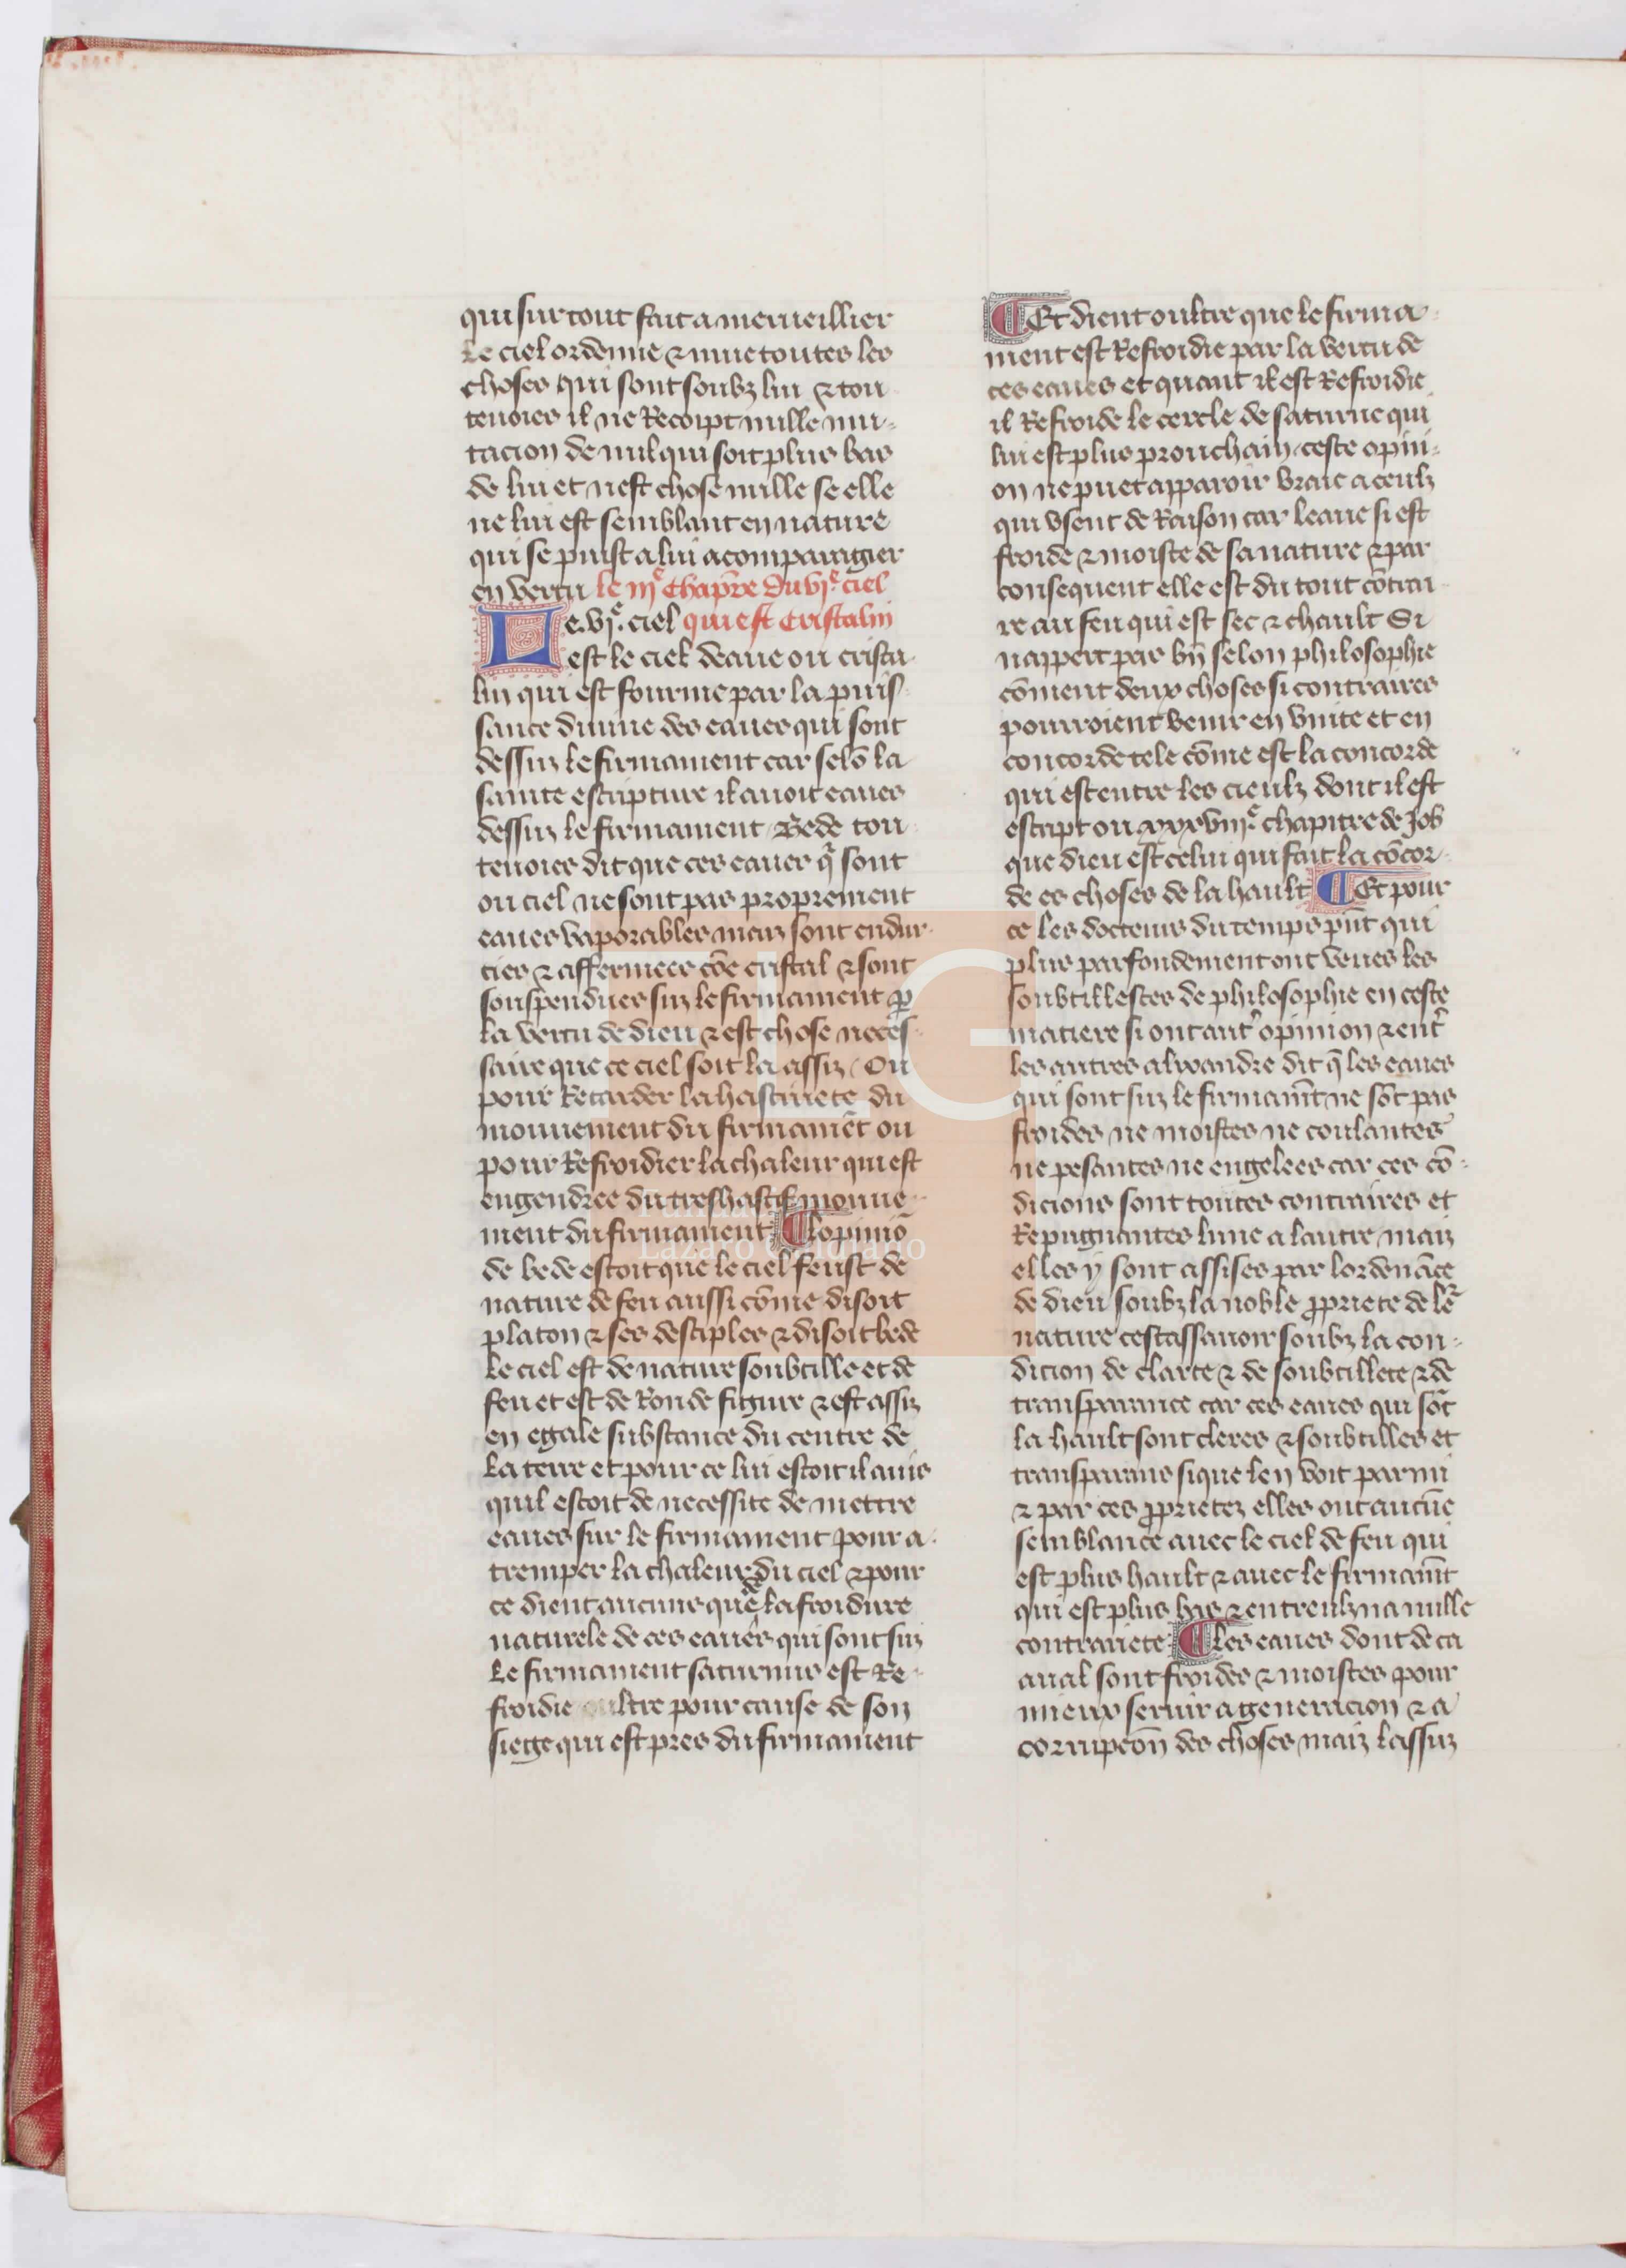 qui sur tout fait a merueillier
Le ciel ordenne ⁊ mue toutes les
choses qui sont soubz lui ⁊ tou
teuoies il ne Recoipt nulle mu-
tacion de nul qui soit plus bas
de lui et nest chose nulle se elle
ne lui est semblant en nature
qui se puist a lui acomparagier
en vertu le iijᵉ chap̄re du vjᵉ. ciel
Le .vjᵉ. ciel qui est cristalin
est le ciel deaue ou crista
lin qui est fourme par la puis-
sance diuine des eaues qui sont
dessuz le firmament car selō la
sainte escripture il auoit eaues
dessuz le firmament / Bede tou
teuoies dit que ces eaues q̄ sont
ou ciel ne sont pas proprement
eaues vaporables maiz sont endur-
cies ⁊ affermees cōe cristal ⁊ sont
souspendues suz le firmament ꝑ
la vertu de dieu ⁊ est chose neces-
saire que ce ciel soit la assiz / Ou
pour Retarder la hastiuete du
mouuement du firmamēt ou
pour Refroidier la chaleur qui est
engendree du treshastif mouue-
ment du firmament ¶ lopiniō
de bede estoit que le ciel feust de
nature de feu aussi cōme disoit
platon ⁊ ses desciples ⁊ disoit bede
Le ciel est de nature soubtille et de
feu et est de Ronde figure ⁊ est assiz
en egale substance du centre de
La terre et pour ce lui estoit il auis
quil estoit de necessite de mettre
eaues sur le firmament pour a-
tremper la chaleur du ciel ⁊ pour
ce dient aucuns que de la froidure
naturele de ces eaues qui sont suz
Le firmament saturnus est Re-
froidie oultre pour cause de son
siege qui est pres du firmament
¶ Et dient oultre que le firma-
ment est Refroidie par la vertu de
ces eaues et quant il est Refroidie
il Refroide le cercle de saturne qui
lui est plus prouchain / ceste opini-
on ne puet apparoir vraie a ceulz
qui vsent de Raison car leaue si est
froide ⁊ moiste de sa nature ⁊ par
consequent elle est du tout cōtrai-
re au feu qui est sec ⁊ chault Si
nappert pas bn̄ selon philosophie
cōment deux choses si contraires
pourroient venir en vnite et en
concorde tele cōme est la concorde
qui est entre les cieulz dont il est
escript ou xxxviijᵉ. chapitre de Job
que dieu est celui qui fait la cōcor-
de es choses de la hault ¶ Et pour
ce les docteurs du temps pn̄t qui
plus parfondement ont veues les
soubtillestes de philosophie en ceste
matiere si ont autˀ opinion ⁊ entˀ
les autres alixandre dit q̄ les eaues
qui sont suz le firmam̄t ne sōt pas
froides ne moistes ne coulantes
ne pesantes ne engelees car ces cō-
dicions sont toutes contraires et
Repugnantes lune a lautre maiz
elles y sont assises par lordenāce
de dieu soubz la noble ꝓpriete de leˀ
nature cestassauoir soubz la con-
dicion de clarte ⁊ de soubtillete ⁊ de
transparance car ces eaues qui sōt
la hault sont cleres ⁊ soubtilles et
transparans si que len voit parmi
⁊ par ces ꝓprietez elles ont aucūe
semblance auec le ciel de feu qui
est plus hault ⁊ auec le firmam̄t
qui est plus bas ⁊ entreulz na nulle
contrariete ¶ Les eaues dont de ca
aual sont froides ⁊ moistes pour
mieux seruir a generacion ⁊ a
corrupcōn des choses maiz lassuz
LG
Lázaro Galdiano